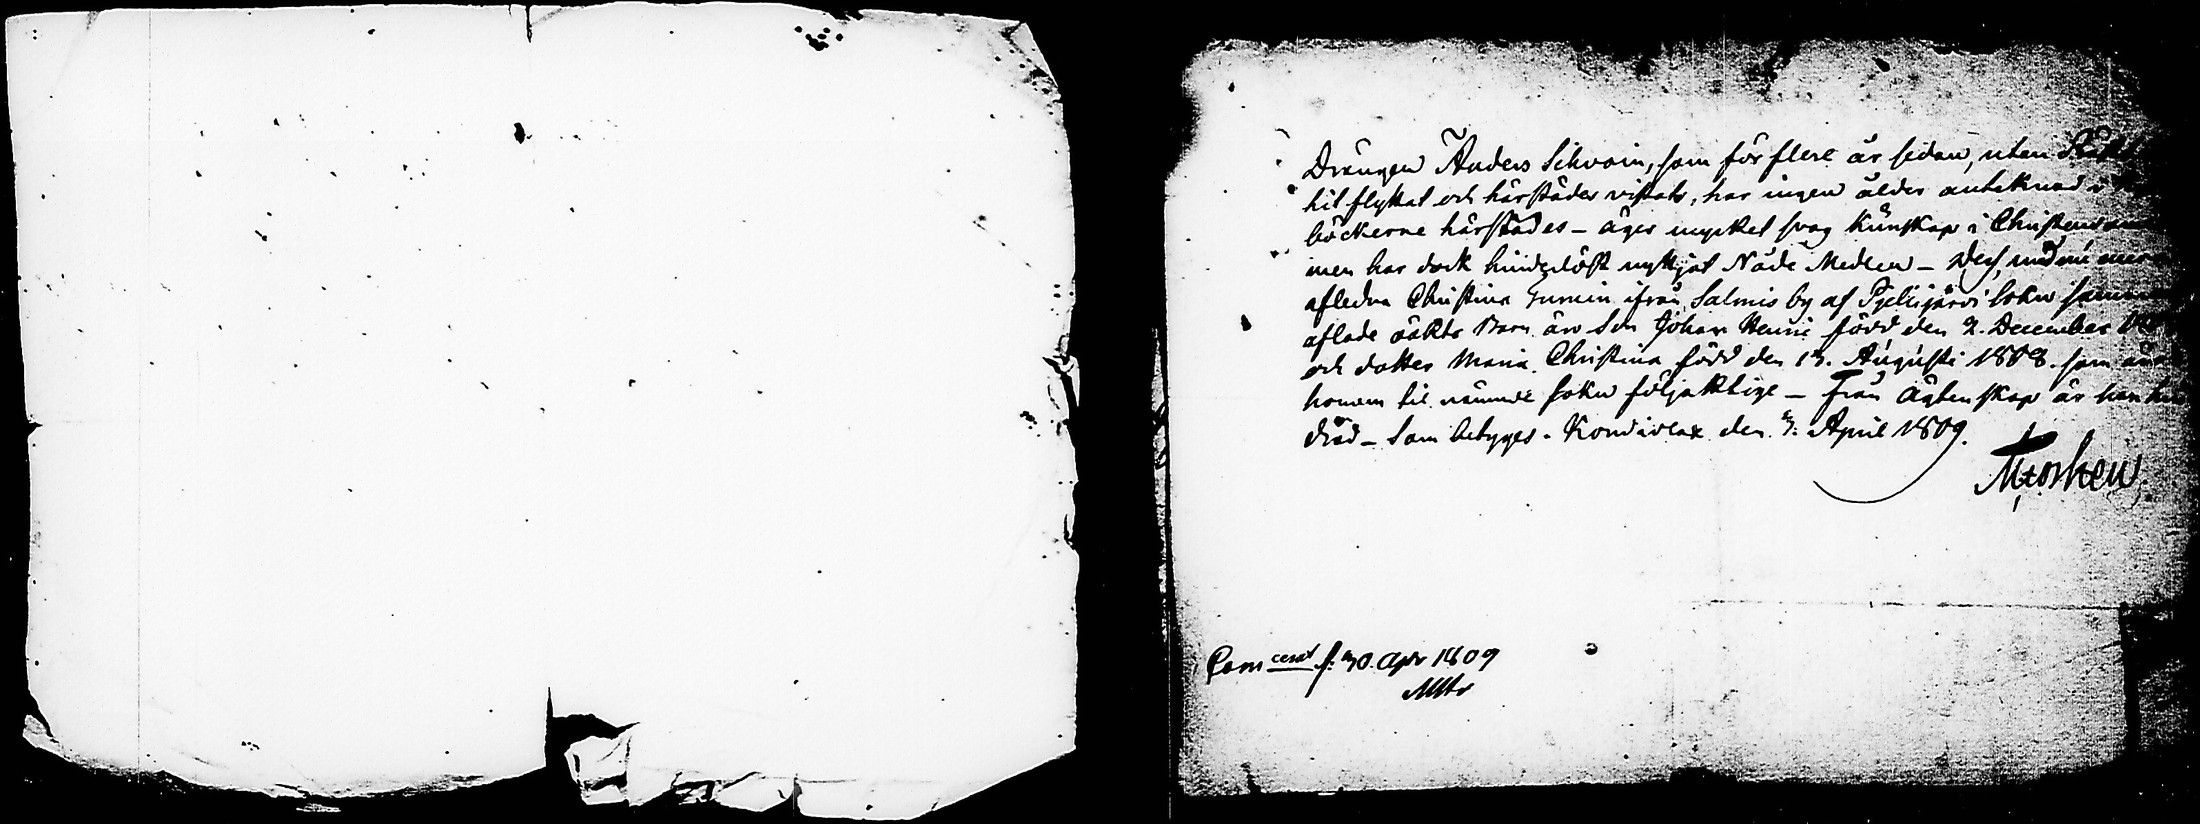 Drängen Anders Sihvoin, som för flere år sedan, utan
hit flyttat och härstädes vistats, har ingen ålder anteknad i
böckerne härstädes – äger mycket svag kunskap i Christendomen
men har dock hinderlöst nyttjat Nåde Medlen – Dess med nu
afledna Christina Turuin ifrån Salmis by af Pjelisjärvi sokn
aflade oäkta Barn äro Son Johan Henric född den 2. December
och dotter Maria Christina född den 13. Augusti 1808. som
honom til nämnde sokn följaktige – Från Ägtenskap är han
– Som betyges. Kondivlax den 3. April 1809.
Com f: 30. Apr 1809